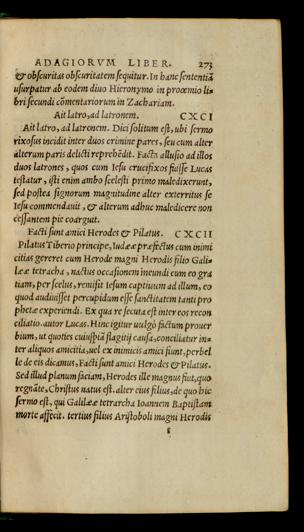 ADAGIORVM LIBER. 273
& obscuritas obscuritatem sequitur. In hanc sententiā
usurpatur ab eodem diuo Hieronymo in proœmio li-
bri secundi cōmentariorum in Zachariam.
Ait latro, ad latronem. CXCI
Ait latro, ad latronem. Dici solitum est, ubi sermo
rixosus incidit inter duos crimine pares, seu cum alter
alterum paris delicti reprehēdit. Facta allusio ad illos
duos latrones, quos cum Iesu crucifixos fuisse Lucas
testatur, isti enim ambo scelesti primo maledixerunt,
sed postea signorum magnitudine alter exterritus se
Iesu commendauit, & alterum adhuc maledicere non
cessantem pie coarguit.
Facti sunt amici Herodes & Pilatus. CXCII
Pilatus Tiberio principe, Iudææ præfectus cum inimi
citias gereret cum Herode magni Herodis filio Gali-
leæ tetracha, nactus occasionem ineundi cum eo gra
tiam, per scelus, remisit Iesum captiuum ad illum, eo
quod audiuisset percupidum esse sanctitatem tanti pro
phetæ experiendi. Ex qua re secuta est inter eos recon
ciliatio. autor Lucas. Hinc igitur uulgò factum prouer
bium, ut quoties cuiuspiā flagitij causa, conciliatur in-
ter aliquos amicitia, uel ex inimicis amici fiunt, perbel
le de eis dicamus, Facti sunt amici Herodes & Pilatus.
Sed illud planum faciam, Herodes ille magnus fuit, quo
regnāte, Christus natus est. alter eius filius, de quo hic
sermo est, qui Galileæ tetrarcha Ioannem Baptistam
morte affecit. tertius filius Aristoboli magni Herodis
s